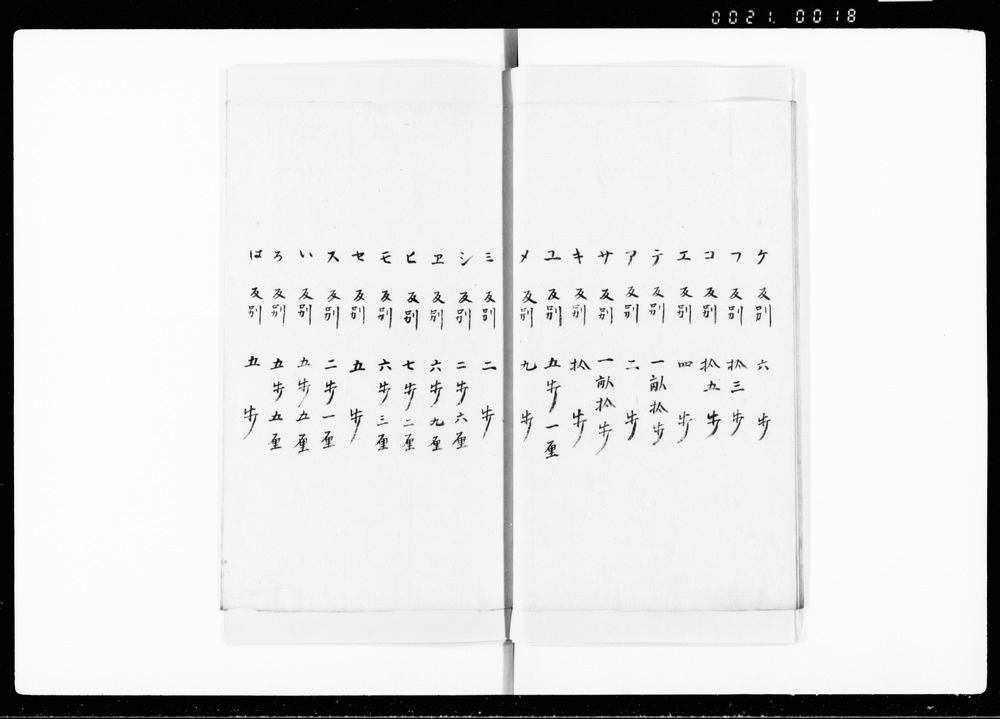 0021. 0018
ケ 反別 六歩
フ 反別 拾三歩
コ 反別 拾五歩
エ 反別 四歩
テ 反別 一畝拾歩
ア 反別 二歩
サ 反別 一畝拾歩
キ 反別 拾歩
ユ 反別 五歩一厘
メ 反別 九歩
ミ 反別 二歩
シ 反別 二歩六厘
ヱ 反別 六歩九厘
ヒ 反別 七歩二厘
モ 反別 六歩三厘
セ 反別 五歩
ス 反別 二歩一厘
い 反別 五歩五厘
ろ 反別 五歩五厘
は 反別 五歩